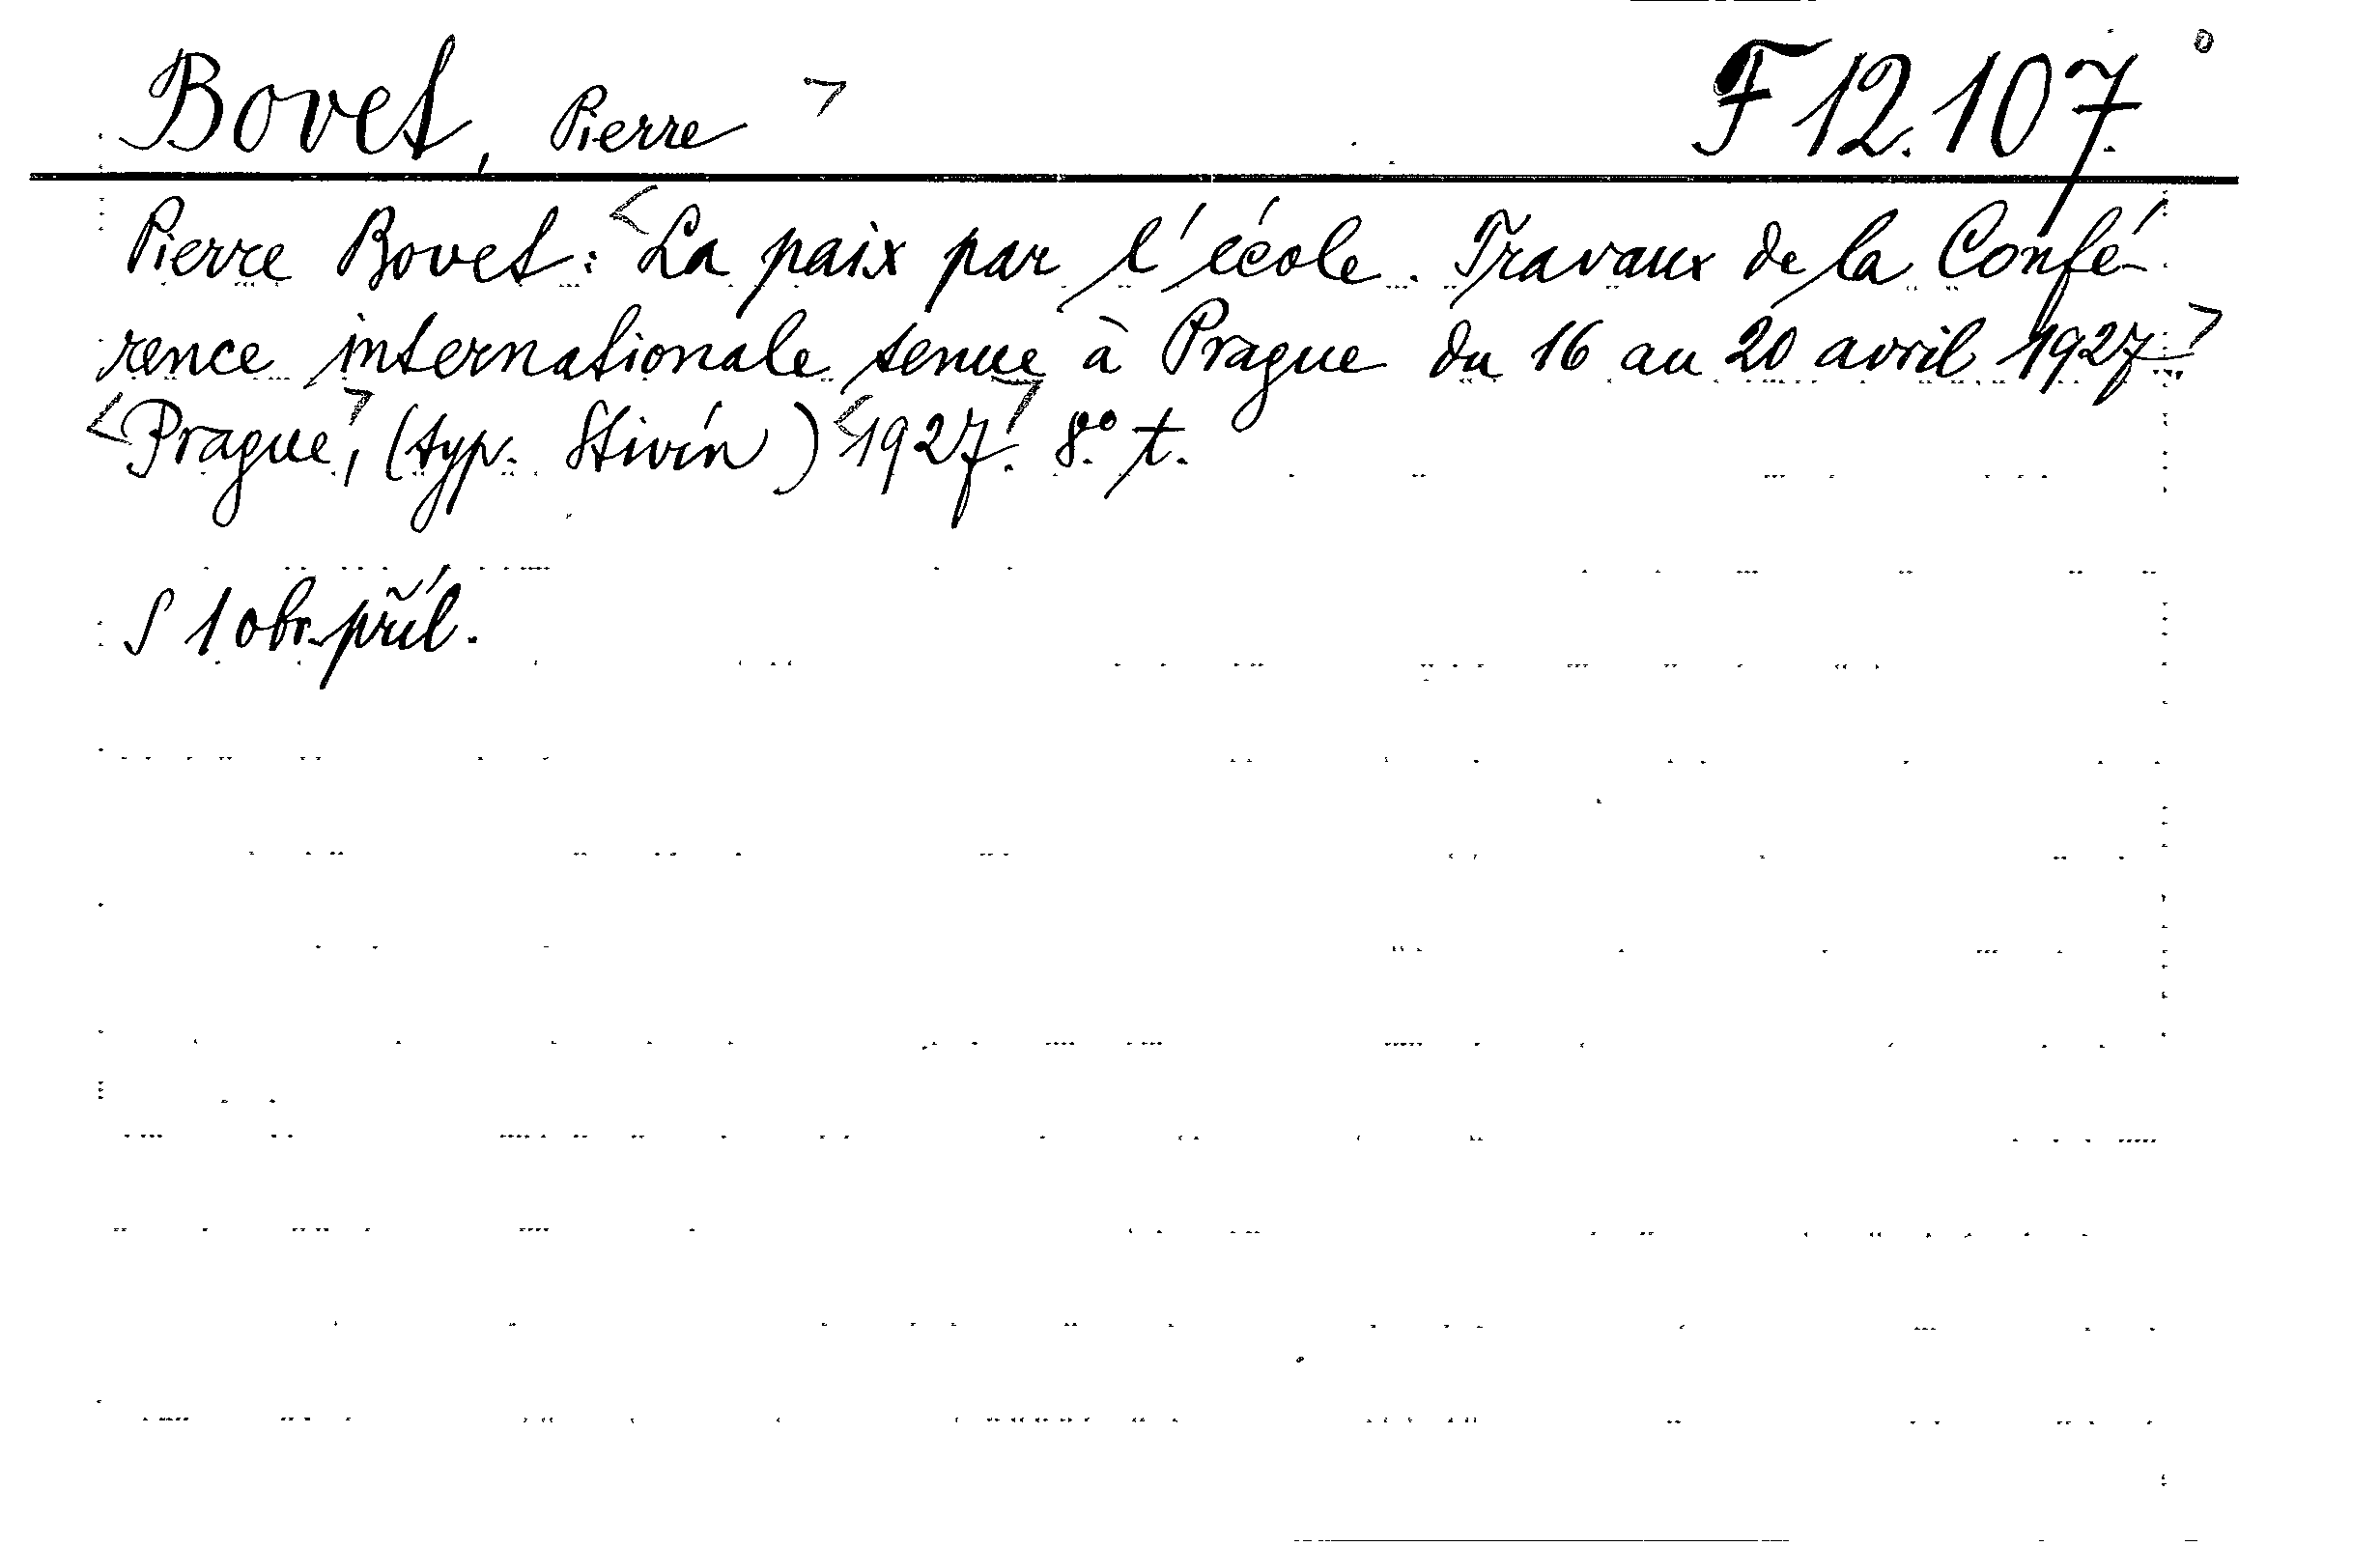 Bovet, Pierre > F 12.107.
Pierre Bovet: <La paix par l'école. Travaux de la Confé-
rence internationale tenue à Prague du 16 au 20 avril 1927.>
<Prague>, (typ. Stivín) <1927>. 8° t.
S 1 obr. příl.